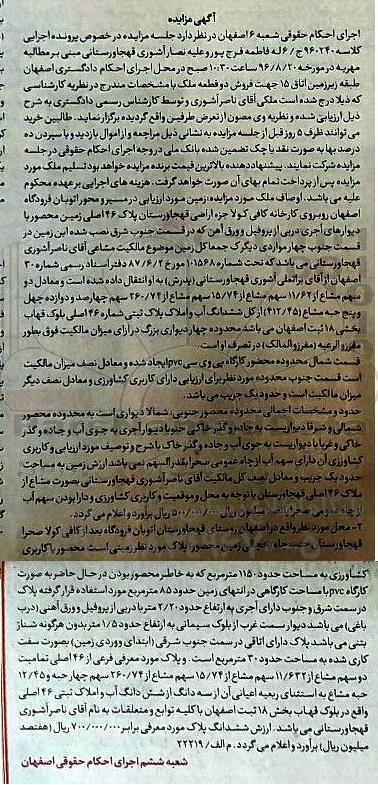 آگهی مزایده
اجرای احکام حقوقی شعبه ۶ اصفهان در نظر دارد جلسه مزایده در خصوص پرونده اجرایی
کلاسه ۹۶۰۲۴۰ ج/۶ له فاطمه فرج پور و علیه نصار آشوری قهجاورستانی مبنی بر مطالبه
مهریه در مورخه ۹۶/۸/۲۰ ساعت ۱۰:۳۰ صبح در محل اجرای احکام دادگستری اصفهان
طبقه زیرزمین اتاق ۱۵ جهت فروش دو قطعه ملک با مشخصات مندرج در نظریه کارشناسی
که ذیلا درج شده است ملکی آقای ناصر آشوری و توسط کارشناس رسمی دادگستری به شرح
ذیل ارزیابی شده و نظریه وی مصون از تعرض طرفین واقع گردیده برگزار نماید. طالبین خرید
می توانند ظرف ۵ روز قبل از جلسه مزایده به نشانی ذیل مراجعه و از اموال بازدید و با سپردن ده
درصد بها به صورت نقد یا چک تضمین شده بانک ملی در وجه اجرای احکام حقوقی در جلسه
مزایده شرکت نمایند. پیشنهاد دهنده بالاترین قیمت برنده مزایده خواهد بود تسلیم ملک مورد
مزایده پس از پرداخت تمام بهای آن صورت خواهد گرفت. هزینه های اجرایی بر عهده محکوم
علیه می باشد. اوصاف ملک مورد مزایده: زمین مورد ارزیابی در مسیر و محور اتوبان فرودگاه
اصفهان روبروی کارخانه کافی کولا جزء اراضی قهجاورستان پلاک ۴۶ اصلی زمین محصور با
دیوارهای آجری دربی از پروفیل و ورق آهن که در قسمت جنوب شرق نصب شده این زمین در
قسمت جنوب چهار موازدی دیگر ک جمعا کل زمین موضوع مالکیت مشاعی آقای ناصر آشوری
قهجاورستانی می باشد که تحت شماره ۱۰۱۵۶۸ مورخ ۸۷/۶/۲ دفتر اسناد رسمی شماره ۳۰
اصفهان از آقای براتعلی آشوری قهجاورستانی (پدرش) به او انتقال داده شده است و معادل دو
سهم مشاع از ۱۱/۶۲ سهم مشاع از ۱۵/۷۴ سهم مشاع از ۲۶۰/۷۴ سهم چهارصد و دوازده چهل
و پنج حبه مشاع (۴۱۲/۴۵) از کل ششدانگ آب و املاک پلاک ثبتی شماره ۴۶ اصلی بلوک قهاب
بخش ۱۸ ثبت اصفهان می باشد محدوده چهار دیواری بزرگ در ازای میزان مالکیت فوق بطور
مفروز المرعیه (مفروزالمالک) در تصرف او است.
قسمت شمال محدوده محضور کارگاه پی وی سی pvc ایجاد شده و معادل نصف میزان مالکیت
است قسمت جنوب محدوده مورد نظر برای ارزیابی دارای کاربری کشاورزی و معادل نصف دیگر
میزان مالکیت است و حدود یک جریب می باشد.
حدود و مشخصات اجمالی محدوده محصور جنوبی: شمالا دیواری است به محدوده محصور
شمالی و شرقا دیواریست به جاده و گذر خاکی جنوبا دیوار آجری به جوی آب و جاده و گذر
خاکی و غربا با دیواریست به جوی آب و جاده و گذر خاک با شرح و توصیف مورد ارزیابی و کاربری
کشاورزی آن دارای سهم آب از چاه عمومی صحرا بقدرالسهم نمی باشد ارزش زمین به مساحت
حدود یک جریب و معادل نصف کل مالکیت آقای ناصر آشوری قهجاورستانی بصورت مشاع از
ملاک ۴۶ اصلی قهجاورستان با توجه به محل و موقعیت و کاربری کشاورزی و دارا بودن سهم آب
از چاه عمومی صحرا پانصد میلیون ریال ۵۰۰/۰۰۰/۰۰۰ ریال برآورد و اعلام می گردد.
۲- محل مورد نظر واقع در اصفهان روستای قهجاورستان اتوبان فرودگاه بعد از کافی کولا صحرا
قهجاورستان جنب چاه زمین محصور پلاک مورد نظر زمینی است محصور با کاربری
کشاورزی به مساحت حدود ۱۱۵۰ مترمربع که به خاطر محصور بودن در حال حاضر به صورت
کارگاه pvc با مساحت کارگاهی در انتهای زمین حدود ۸۵ مترمربع مورد استفاده قرار گرفته پلاک
در سمت شرق و جنوب دارای آجری به ارتفاع حدود ۲/۲۰ متر با دربی از پروفیل و ورق آهنی (درب
باغی) می باشد دیوار سمت غرب از بلوک سیمانی به ارتفاع حدود ۱/۵ متر بدون هرگونه شناژ
بتنی می باشد پلاک دارای اتاقی در سمت جنوب شرقی (ابتدای ورودی زمین) بصورت سفت
کاری شده به مساحت حدود ۳۰ مترمربع است. و پلاک مورد معرفی فرعی از ۴۶ اصلی تمامیت
دو سهم مشاع از ۱۱/۶۳۲ سهم مشاع از ۱۵/۷۴ سهم مشاع از ۲۶۰/۷۴ سهم چهار حبه و ۱۲/۴۵
حبه مشاع به استثنای ربعیه اعیانی آن از سه دانگ از شش دانگ آب و املاک ثبتی ۴۶ اصلی
واقع در بلوک قهاب بخش ۱۸ ثبت اصفهان با کلیه توابع و متعلقات به نام آقای ناصر آشوری
قهجاورستانی می باشد. ارزش ششدانگ پلاک مورد معرفی برابر ۷۰۰/۰۰۰/۰۰۰ ریال (هفتصد
میلیون ریال) برآورد و اعلام می گردد. م الف/ ۲۲۲۱۹
شعبه ششم اجرای احکام حقوقی اصفهان